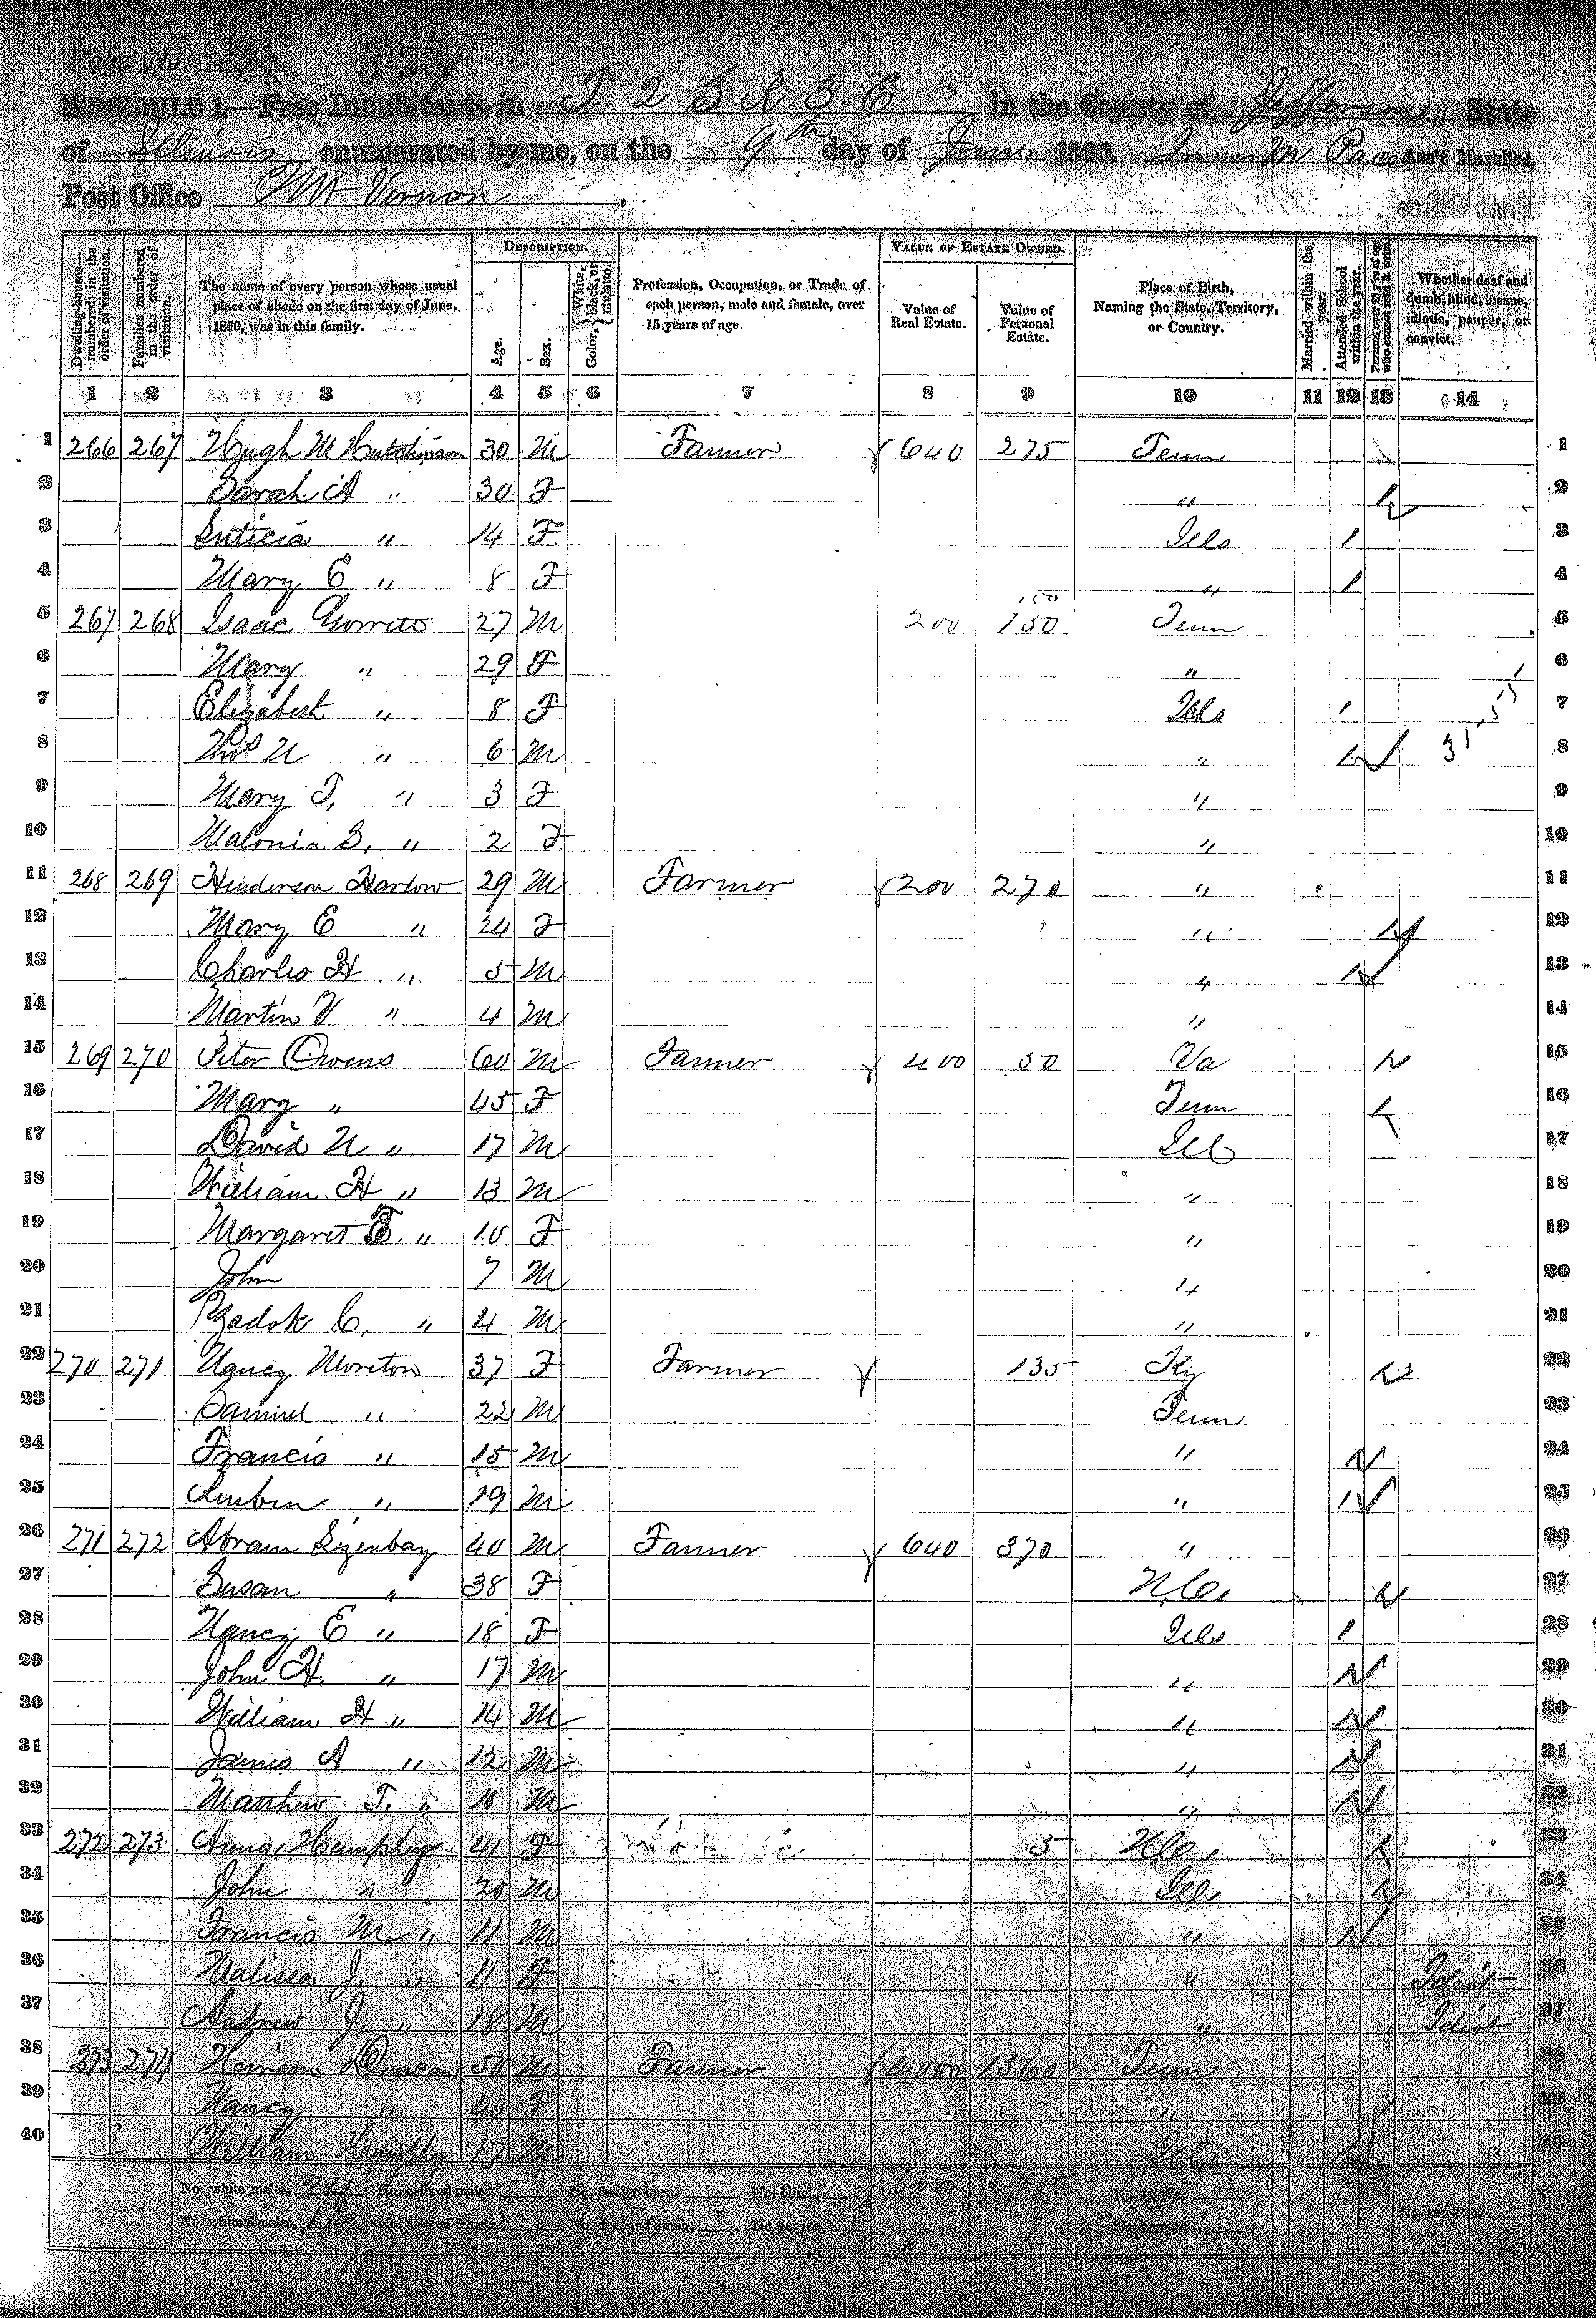 Page No. 39 829
SCHEDULE 1.—Free Inhabitants in T 2 S R 3 E in the County of Jefferson State
of Illinois enumerated by me, on the 9th day of June 1860. James M Pace Ass't Marshal.
Post Office Mt Vernon
Dwelling-houses—numbered in the order of visitation. Families numbered in the order of visitation. The name of every person whose usual place of abode on the first day of June, 1860, was in this family. DESCRIPTION. Age. Sex. Color, White, black, or mulatto. Profession, Occupation, or Trade of each person, male and female, over 15 years of age. VALUE OF ESTATE OWNED. Value of Real Estate. Value of Personal Estate. Place of Birth, Naming the State, Territory, or Country. Married within the year. Attended School within the year. Persons over 20 y'rs of age who cannot read & write. Whether deaf and dumb, blind, insane, idiotic, pauper, or convict.
1 2 3 4 5 6 7 8 9 10 11 12 13 14
1 266 267 Hugh M Hutchinson 30 M Farmer 640 275 Tenn 1
2 Sarah A " 30 F " 1 2
3 " 14 F Ills 1 3
4 Mary E " 8 F " 1 4
5 267 268 Isaac 27 M 200 150 Tenn 5
6 Mary " 29 F " 6
7 Elizabeth " 8 F Ills 1 7
8 Thos N " 6 M " 1 8
9 Mary T, " 3 F " 9
10 Malonia S, " 2 F " 10
11 268 269 Henderson Harlow 29 M Farmer 200 270 " 11
12 Mary E " 24 F " 1 12
13 Charles H " 5 M " 1 13
14 Martin V " 4 M " 14
15 269 270 Peter Owens 60 M Farmer 400 50 Va 1 15
16 Mary " 45 F Tenn 1 16
17 David N " 17 M Ill 17
18 William H " 13 M " 18
19 Margaret E. " 10 F " 19
20 John 7 M " 20
21 Zadok C, " 4 M " 21
22 270 271 Nancy 37 F Farmer 135 Ky 1 22
23 Samuel " 22 M Tenn 23
24 Francis " 15 M " 1 24
25 Reuben " 19 M " 1 25
26 271 272 Abram 40 M Farmer 640 370 " 26
27 Susan " 38 F N,C, 1 27
28 Nancy E " 18 F Ills 1 28
29 John H. " 17 M " 1 29
30 William H " 14 M " 1 30
31 James A " 12 M " 1 31
32 Matthew T. " 10 M " 1 32
33 272 273 Anna Humphrey 41 F 5 N,C, 1 33
34 John " 20 M Ill 1 34
35 Francis M. " 11 M " 1 35
36 Malissa J, " 11 F " Idiot 36
37 Andrew J, " 18 M " Idiot 37
38 273 274 Hiram Duncan 50 M Farmer 4000 1560 Tenn 38
39 Nancy " 40 F " 39
40 William Humphry 17 M Ill 1 40
No. white males, 24 No. colored males, No. foreign born, No. blind, 6,080 2,815 No. idiotic,
No. white females, 16 No. colored females, No. deaf and dumb, No. insane, No. paupers, No. convicts,